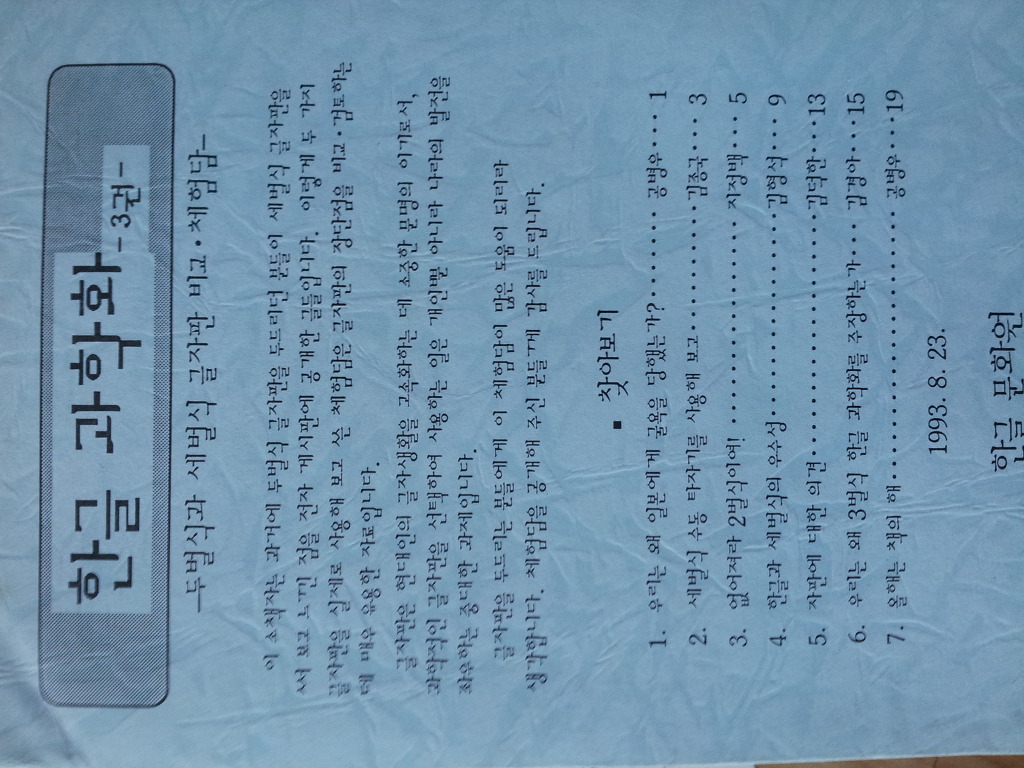 한글 과학화 -3권-
-두벌식과 세벌식 글자판 비교·체험담-
이 소책자는 과거에 두벌식 글자판을 두드리던 분들이 세벌식 글자판을
써 보고 느낀 점을 전자 게시판에 공개한 글들입니다. 이렇게 두 가지
글자판을 실제로 사용해 보고 쓴 체험담은 글자판의 장단점을 비교·검토하는
데 매우 유용한 자료입니다.
글자판은 현대인의 글자생활을 고속화하는 데 소중한 문명의 이기로서,
과학적인 글자판을 선택하여 사용하는 일은 개인뿐 아니라 나라의 발전을
좌우하는 중대한 과제입니다.
글자판을 두드리는 분들에게 이 체험담이 많은 도움이 되리라
생각합니다. 체험담을 공개해 주신 분들께 감사를 드립니다.
■ 찾아보기
1. 우리는 왜 일본에게 굴욕을 당했는가?······· 공병우··· 1
2. 세벌식 수동 타자기를 사용해 보고··········김종국··· 3
3. 없어져라 2벌식이여! ·················· 지정백··· 5
4. 한글과 세벌식의 우수성·················김형석··· 9
5. 자판에 대한 의견·····················김덕한···13
6. 우리는 왜 3벌식 한글 과학화를 주장하는가··· 김경아···15
7. 올해는 책의 해······················ 공병우···19
1993. 8. 23.
한글 문화원